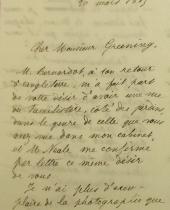 20 mars 18
Cher Monsieur Greening,
M. Bernardot, à son retour
d'angleterre, m'a fait part
de votre désir d'avoir une vue
du familistère, côté des jardins,
dans le genre de celle que vous
avez vue dans mon cabinet,
et M. Neale me confirme
par lettre ce même désir
de vous.
Je n'ai plus d'exem-
plaire de la photographie que